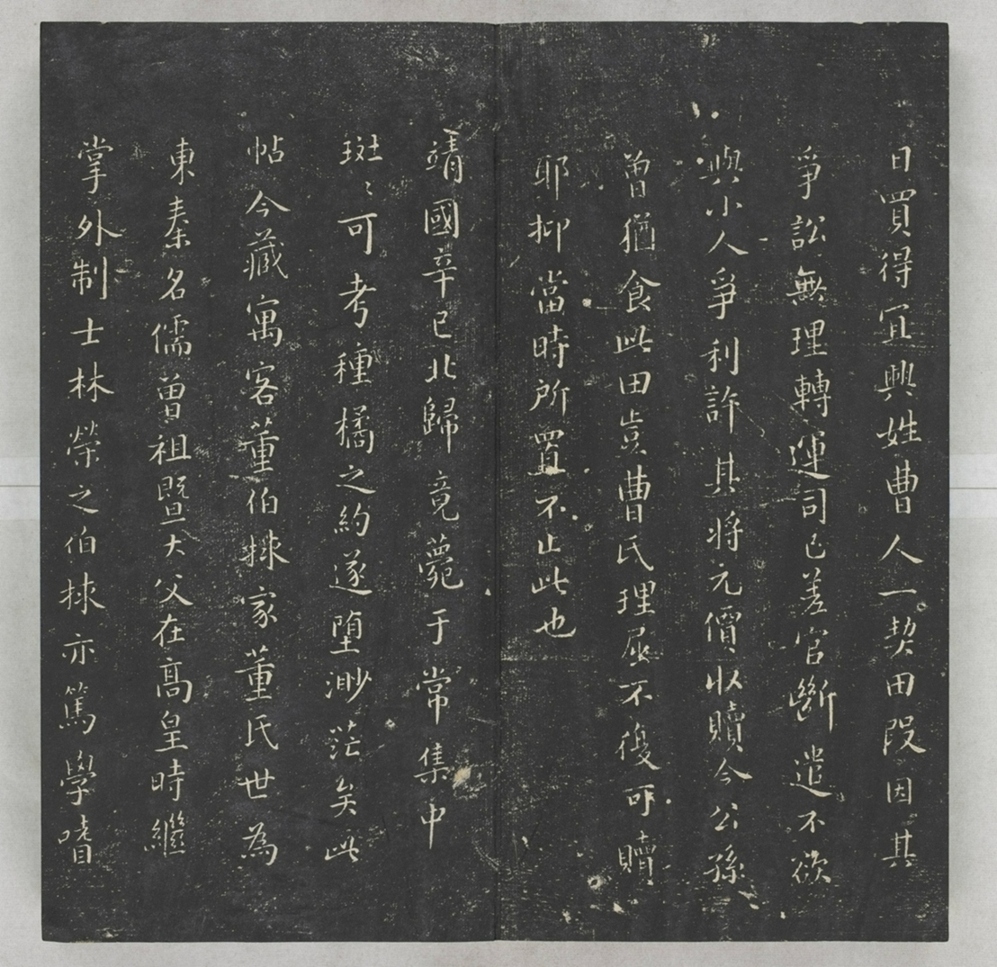 日買得宜興姓曹人一契田段因其
爭訟無理轉運司已差官斷遣不欲
與小人爭利許其將元價收贖今公孫
曾猶食此田豈曹氏理屈不復可贖
耶抑當時所置不止此也
靖國辛巳北歸竟薨于常集中
斑〻可考種橘之約遂墮渺茫矣此
帖今藏寓客董伯捄家董氏世為
東秦名儒曾祖曁大父在髙皇時繼
掌外制士林榮之伯捄亦篤學嗜